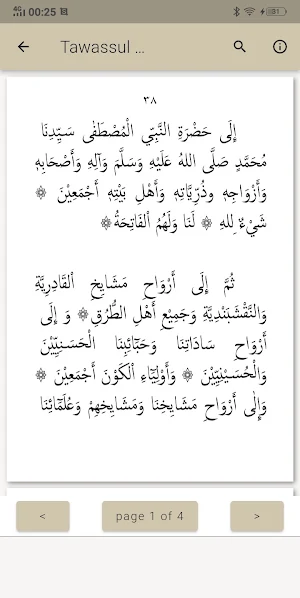 4G 00:25
31
Tawassul ...
٣٨
إِلَى حَضْرَةِ النَّبِيِّ الْمُصْطَفٰى سَيِّدِنَا
مُحَمَّدٍ صَلَّى اللهُ عَلَيْهِ وَسَلَّمَ وَآلِهِ وَأَصْحَابِهِ
وَأَزْوَاجِهِ وَذُرِّيَّاتِهِ وَأَهْلِ بَيْتِهِ أَجْمَعِيْنَ ۞
شَيْءٌ لِلهِ ۞ لَنَا وَلَهُمُ الْفَاتِحَةُ ۞
ثُمَّ إِلَى أَرْوَاحِ مَشَايِخِ الْقَادِرِيَّةِ
وَالنَّقْشَبَنْدِيَّةِ وَجَمِيْعِ أَهْلِ الطُّرُقِ ۞ وَ إِلَى
أَرْوَاحِ سَادَاتِنَا وَحَبَائِبِنَا الْحَسَنِيِّيْنَ
وَالْحُسَيْنِيِّيْنَ ۞ وَأَوْلِيَآءِ الْكَوْنَ أَجْمَعِيْنَ ۞
وَإِلٰى أَرْوَاحِ مَشَايِخِنَا وَمَشَايِخِهِمْ وَعُلَمَآئِنَا
< page 1 of 4 >